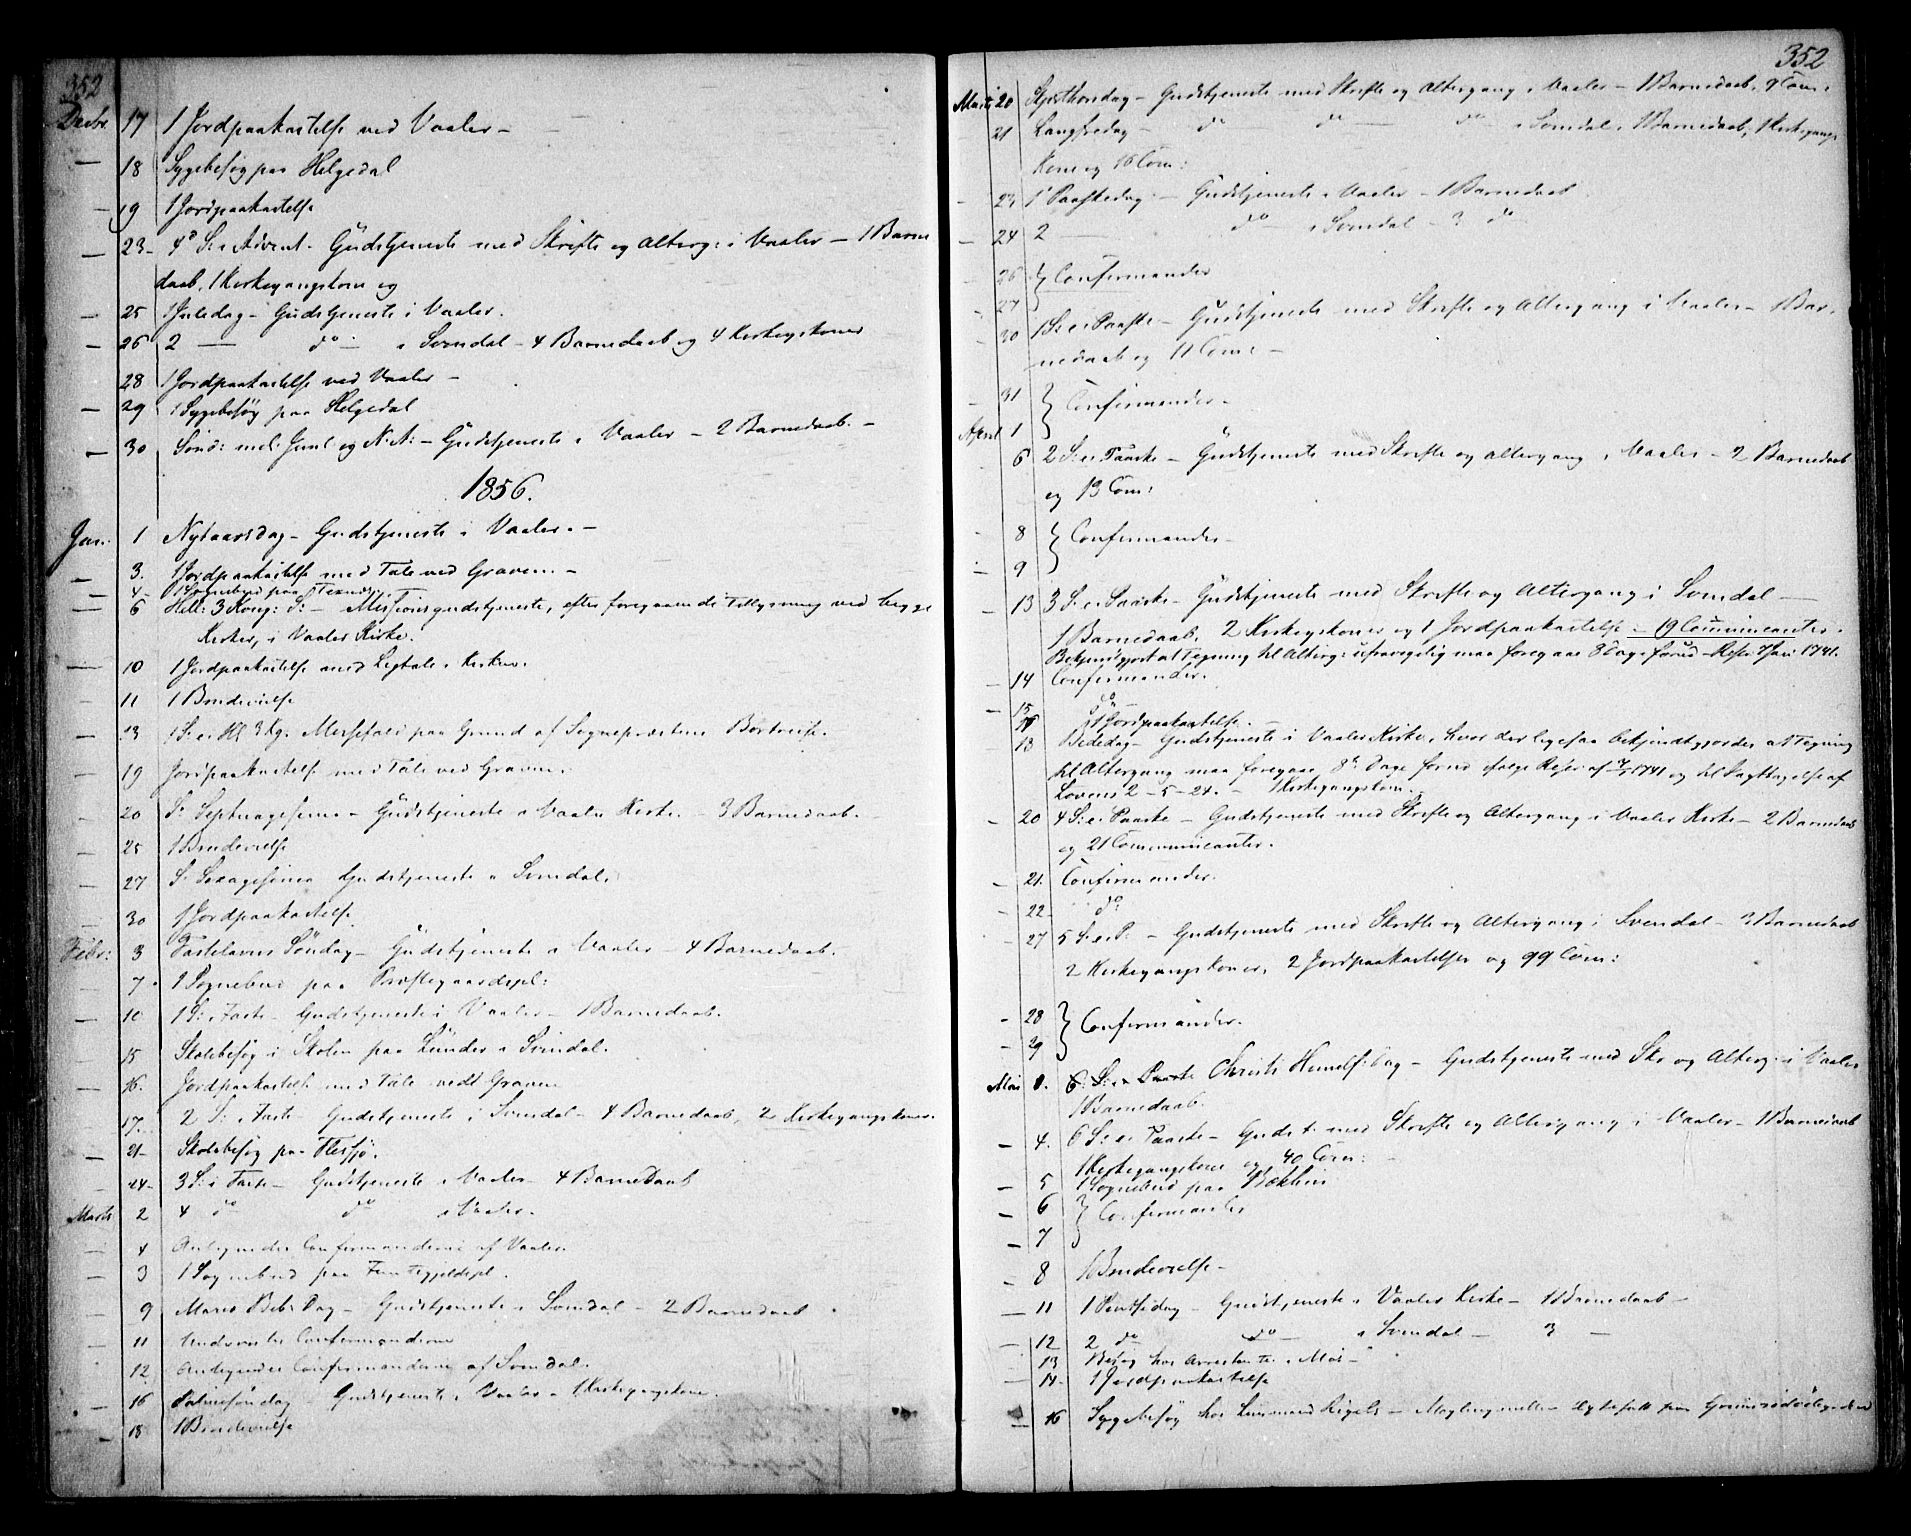 352
Decbr. 17 1 Jordpaakastelse ved Vaaler –
— 18 Sygebesøg paa Helgedal
— 19 1 Jordpaakastelse
— 23 – 4de S: i Advent. Gudstjeneste med Skrifte og Alterg: i Vaaler – 1 Barne
daab, 1 Kirkegangskone og
— 25 1 Juledag – Gudstjeneste i Vaaler.
— 26 2 — do — i Svindal – 4 Barnedaab og 4 Kirkegskoner
28 1 Jordpaakastelse ved Vaaler –
— 29 1 Sygebesøg paa Helgedal
— 30 Sønd: mel. Juul og N.A: – Gudstjeneste i Vaaler – 2 Barnedaab. –
1856.
Jan. 1 Nytaarsdag – Gudstjeneste i Vaaler. –
— 3. 1 Jordpaakastelse med Tale ved Graven. –
— 4 – 1 Sognebud paa
— 6 Hell: 3 Kong: S: – Missionsgudstjeneste, efter foregaaende Tillysning ved begge
Kirker, i Vaaler Kirke.
— 10 1 Jordpaakastelse med Ligtale i Kirken.
— 11 1 Brudevielse
— 13 1 S. e. Hl 3 Kg. Messefald paa Grund af Sognepræstens Bortreise.
— 19 Jordpaakastelse med Tale ved Graven.
— 20 S. Septuagesima – Gudstjeneste i Vaaler Kirke. – 3 Barnedaab.
— 25 1 Brudevielse
— 27 S. Sexagesima Gudstjeneste i Svindal.
— 30 1 Jordpaakastelse
Febr: 3 Fastelavns Søndag – Gudstjeneste i Vaaler – 4 Barnedaab.
— 7. 1 Sognebud paa Præstegaardspl:
— 10 1 S. i Faste – Gudstjeneste i Vaaler – 1 Barnedaab.
— 15 Skolebesøg i Skolen paa Lunder i Svindal.
— 16. Jordpaakastelse med Tale ved Graven
— 17. 2 S: i Faste – Gudstjeneste i Svindal – 4 Barnedaab, 2 Kirkegangskoner.
— 21 – Skolebesøg paa Flesjø.
— 24 – 3 S: i Faste – Gudstjeneste i Vaaler – 4 Barnedaab
Marts 2 4 do do i Vaaler.
— 4 Antegnedes Confirmanderne af Vaaler.
— 3 1 Sognebud paa
— 9 Mariæ Beb: Dag – Gudstjeneste i Svindal – 2 Barnedaab
— 11 Undervistes Confirmanderne
— 12 Antegnedes Confirmanderne af Svindal.
— 16 Palmesøndag – Gudstjeneste i Vaaler – 1 Kirkegangskone.
— 18 1 Brudevielse
352
Marts 20 Skjærthorsdag – Gudstjeneste med Skrifte og Altergang i Vaaler – 1 Barnedaab, 9 Com:
21 Langfredag – do — do — do i Svindal, 1 Barnedaab, 1 Kirkegangs
Kone og 16 Com:
— 23 1 Paaskedag – Gudstjeneste i Vaaler – 1 Barnedaab.
— 24 2 — do i Svindal – 3 do
— 26 } Confirmander
— 27
— 30 1 S. e. Paaske – Gudstjeneste med Skrifte og Altergang i Vaaler – 1 Bar,
nedaab og 11 Com: –
— 31 } Confirmander –
April 1
6 2 S: e. Paaske – Gudstjeneste med Skrifte og Altergang i Vaaler – 2 Barnedaab
og 13 Com:
— 8 } Confirmander –
— 9
— 13 3 S. e. Paaske – Gudstjeneste med Skrifte og Altergang i Svindal —
1 Barnedaab, 2 Kirkegskoner og 1 Jordpaakastelse – 19 Communicanter.
Bekjendtgjort at Tegning til Alterg: ufravigelig maa foregaae 8 Dage forud – Rescr. 7 Jan: 1741.
— 14 Confirmander.
— 15 do –
1 Jordpaakastelse.
18 Bededag – Gudstjeneste i Vaaler Kirke, hvor der ligesaa bekjendtgjordes at Tegning
til Altergang maa foregaae 8te Dage forud ifølge Rescr af 7/1 1741 og til Iagttagelse af
Lovens 2 – 5 – 24. – 1 Kirkegangskone.
— 20 4 S: e. Paaske – Gudstjeneste med Skrifte og Altergang i Vaaler Kirke – 2 Barnedaab
og 21 Communicanter.
— 21. Confirmander.
— 22 do
— 27 5 S. e. P: – Gudstjeneste med Skrifte og Altergang i Svindal – 3 Barnedaab
2 Kirkegangskoner, 2 Jordpaakastelser og 99 Com:
— 28 } Confirmander.
— 29
Mai 1. 6. S: e. Paaske Christi Himmelf: Dag – Gudstjeneste med Skr og Alterg. i Vaaler
1 Barnedaab.
— 4. 6 S: e. Paaske – Gudst. med Skrifte og Altergang i Vaaler – 1 Barnedaab
1 Kirkegangskone og 40 Com:
— 5 1 Sognebud paa
— 6 } Confirmander
— 7
— 8 1 Brudevielse –
— 11 1 Pintsedag – Gudstjeneste i Vaaler Kirke – 1 Barnedaab –
— 12 2 do do — i Svindal – 3 —
— 13 Besøg hos Arrestanter i Mos –
— 14 1 Jordpaakastelse
— 16 Sygebesøg hos